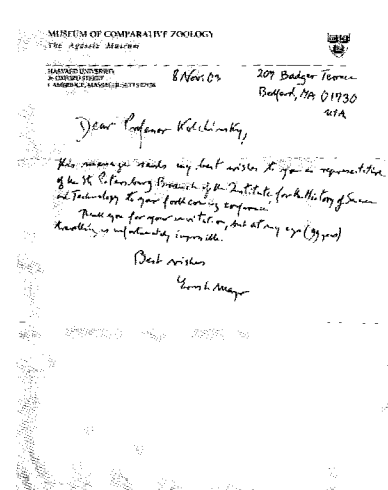 MUSEUM OF COMPARATIVE ZOOLOGY
The Agassiz Museum
HARVARD UNIVERSITY
26 OXFORD STREET
CAMBRIDGE, MASSACHUSETTS 02138
8 Nov. 03
207 Badger Terrace
Bedford, MA 01730
USA
Dear Professor Kolchinsky,
This message sends my best wishes to you as representative
of the St. Petersburg Branch of the Institute for the History of Science
and Technology to your forthcoming conference.
Thank you for your invitation, but at my age (99 years)
travelling is unfortunately impossible.
Best wishes
Ernst Mayr